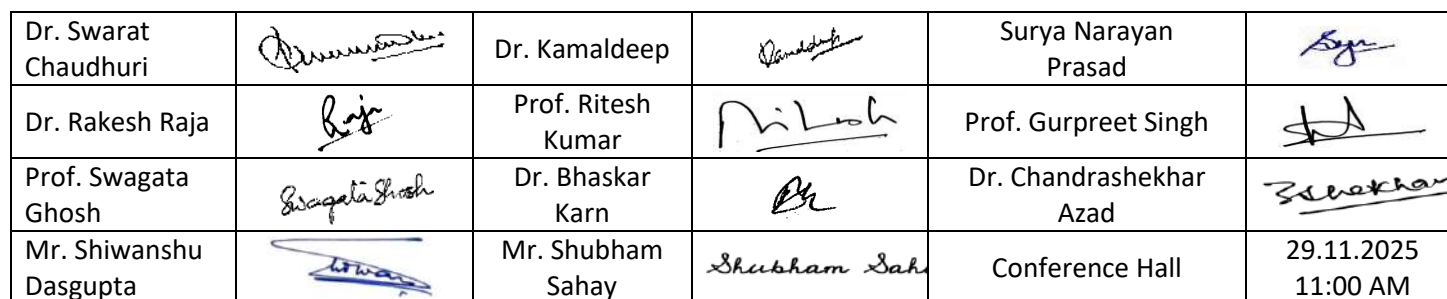 Dr. Swarat Chaudhuri Dr. Kamaldeep Surya Narayan Prasad
Dr. Rakesh Raja Raja Prof. Ritesh Kumar Ritesh Prof. Gurpreet Singh
Prof. Swagata Ghosh Swagata Ghosh Dr. Bhaskar Karn Dr. Chandrashekhar Azad
Mr. Shiwanshu Dasgupta Mr. Shubham Sahay Shubham Sah Conference Hall 29.11.2025 11:00 AM